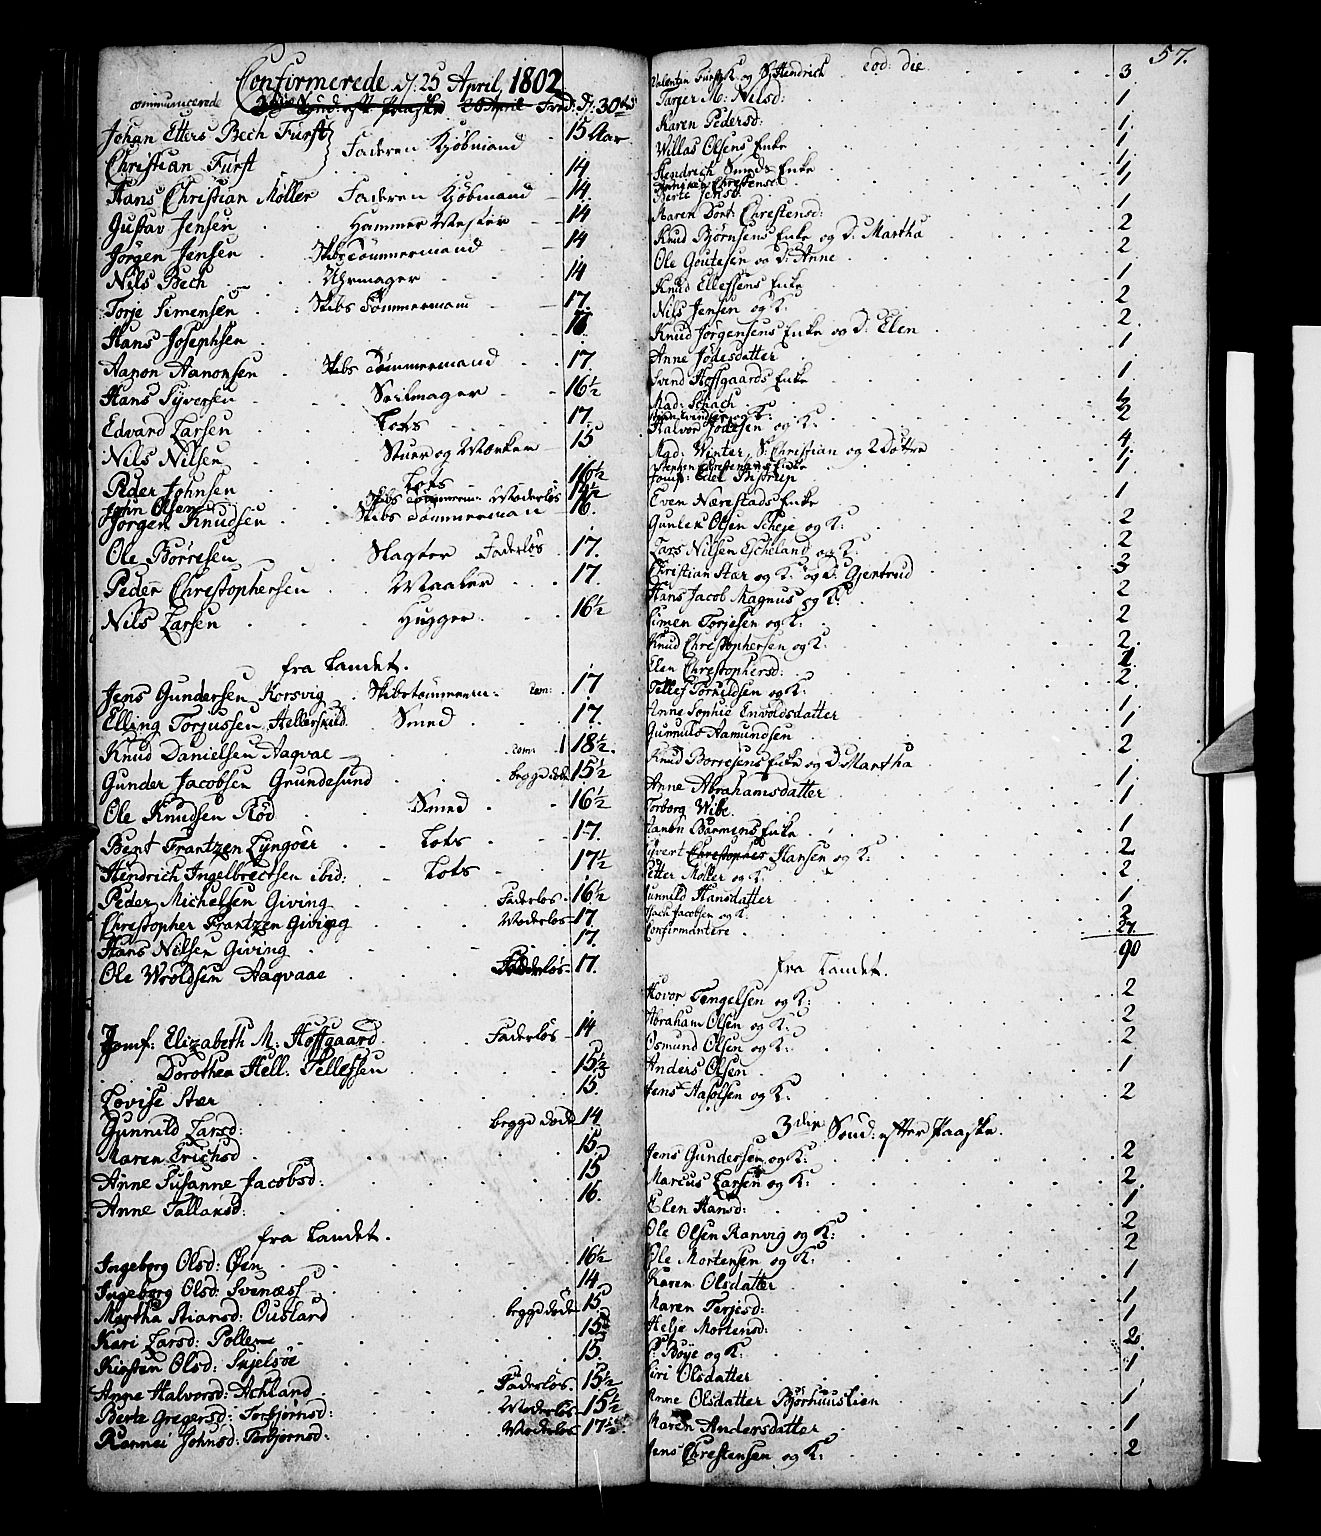 Confirmerede d. 25 April 1802
communicerede
Johan Etters Bech Fürst } Faderen Kjöbmand 15 Aar
Christian Fürst 14
Hans Christian Möller Faderen Kjöbmand 14.
Gustav Jensen Hammer Mester 14
Jörgen Jensen Skibs Tömmermand 14
Nils Bech Uhrmager 14
Torje Simensen Skibs Tömmermand 17.
Hans Josephsen
Aanon Aanonsen Skibs Tömmermand 17.
Hans Syversen Seilmager 16½
Edvard Larsen Lots 17.
Nils Nilsen Stuer og Mærker 15
Peder Johnsen Lots 16½
John Olsen Skibs Tömmerm: Moderlös
Jörgen Knudsen Skibs Tömmerman 16.
Ole Börresen Slagter Faderlös 17.
Peder Christophersen Maaler 17.
Nils Larsen Hugger 16½
fra Landet.
Jens Gundersen Korsvig Skibstömmerm: com: 17
Elling Torjussen Hellerskild Smed 17.
Knud Danielsen Aaqvae com: 18½
Gunder Jacobsen Grundesund begge döde 15½
Ole Knudsen Röd Smed 16½
Bent Frantzen Lyngöer Lots 17.
Hendrich Ingelbrectsen ibid: Lots 17½
Peder Michelsen Giving Faderlös 16½
Christopher Frantzen Giving Moderlös 17
Hans Nilsen Giving 17.
Ole Wroldsen Aaqvaae Faderlös 17.
Jomf: Elizabeth M: Hoffgaard Faderlös 14
Dorothea Hell: Tellefsen 15½
Lovise Stær 15.
Gunnild Larsd: begge döde 14
Maren Erichsd 15.
Anne Susanne Jacobsd: 15
Anne Tallaksd: 16.
fra Landet.
Ingeborg Olsd: Öen 16½
Ingeborg Olsd: Svenæs 14
Martha Stiansd: Oustland begge döde 15
Kari Larsd: Pollen 15
Kirsten Olsd: 15.
Anne Halvorsd: Ackland Faderlös. 15½
Berte Gregersd: Torbjørnsd: Moderlös 15½
Rannei Johnsd: Torbjørnsd: Moderlös 17½.
57.
Valentin Fürst K og S: Hendrich eod: die 3
Tarjer M: Nilsd: 1
Karen Pedersd: 1
Willas Olsens Enke 1
Hendrich Smeds Enke 1
Berte Jensd: 1
Maren Dort Christensd: 1
Knud Björnsens Enke og D: Martha 2
Ole Goutesen og D: Anne 2
Knud Ellefsens Enke 1
Nils Jensen og K: 2
Knud Jörgensens Enke og D: Elen 2.
Anne Jödesdatter 1
Svend Hoffgaards Enke 1
Mad: Schach
Halvor Jödesen og K: 2
Mad: Winter, S: Christian og 2 Döttre 4.
Jomf: Edel 1
Even Nærestads Enke 1
Gunlek Olsen Scheje og K: 2
Lars Nilsen Escheland og K: 2
Christian Stær og K: og D: Gjertrud 3
Hans Jacob Magnus og K: 2
Simen Torjesen og K: 2
Knud Christophersen og K: 2.
Elen Christophersd: 1
Tellef Torkildsen og K: 2
Anne Sophie Envoldsdatter 1
Gunuld Aamundsen 1
Knud Borresens Enke og D Martha 2
Anne Abrahamsdatter 1
Torborg Wibe 1
Enke 1
Syvert Hansen og K: 2
Petter Möller og K 2
Gunnild Hansdatter 1
Isach Jacobsen og K 2
Confirmantere 27
90
fra Landet.
Hovor Tengelsen og K: 2
Abraham Olsen og K: 2
Osmund Olsen og K: 2
Anders Olsen 1
Jens Aasolsen og K: 2
3die Sönd: efter Paaske.
Jens Gundersen og K: 2
Marcus Larsen og K: 2.
Elen Hansd: 1
Ole Olsen Ranvig og K: 2
Ole Mortensen og K: 2
Karen Olsdatter 1
Maren Terjesd: 1
Helje Mortensd: 1
P: Böye og K: 2
Siri Olsdatter 1
Anne Olsdatter 1
Maren Andersdatter 1
Jens Christensen og K: 2